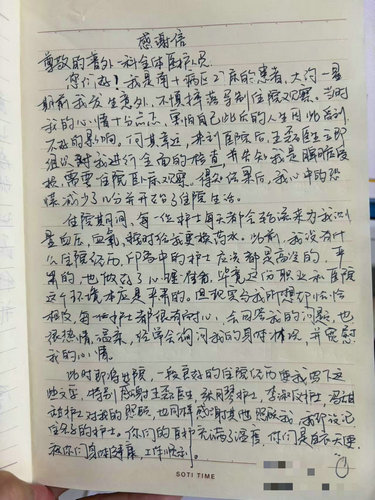 感谢信
尊敬的普外一科全体医护人员
您们好！我是南十病区21床的患者，大约一星
期前我发生意外，不慎摔落导致住院观察。当时
我的心情十分忐忑，害怕自己以后的人生因此受到
不好的影响。何其幸运，来到医院后，王磊医生立即
组织对我进行全面的检查，并告知我是腰
需要住院卧床观察。得知结果后，我心中的恐
惧减少了几分并开始了住院生活。
住院期间，每一位护士每天都会轮流来为我测
量血压、血氧，按时给我更换药水。此前，我没有什
么住院经历，印象中的护士应该都是高冷的，严
肃的，也做好了心理准备，毕竟这份职业和医院
这个环境本应是严肃的。但现实与我所想却恰恰
相反，每一位护士都很有耐心，会回答我的问题，也
很热情，温柔，经常会询问我的身体情况，并安慰
我的心情。
此时即将出院，一段良好的住院经历让我写下这
些文字，特别感谢王磊医生，护士，李护士，冯甜
甜护士对我的照顾，也同样感谢其他照顾我，我却没记
住名字的护士。你们的百般充满了温度，你们是白衣天使
祝你们身体健康，工作顺利。
SOTI TIME